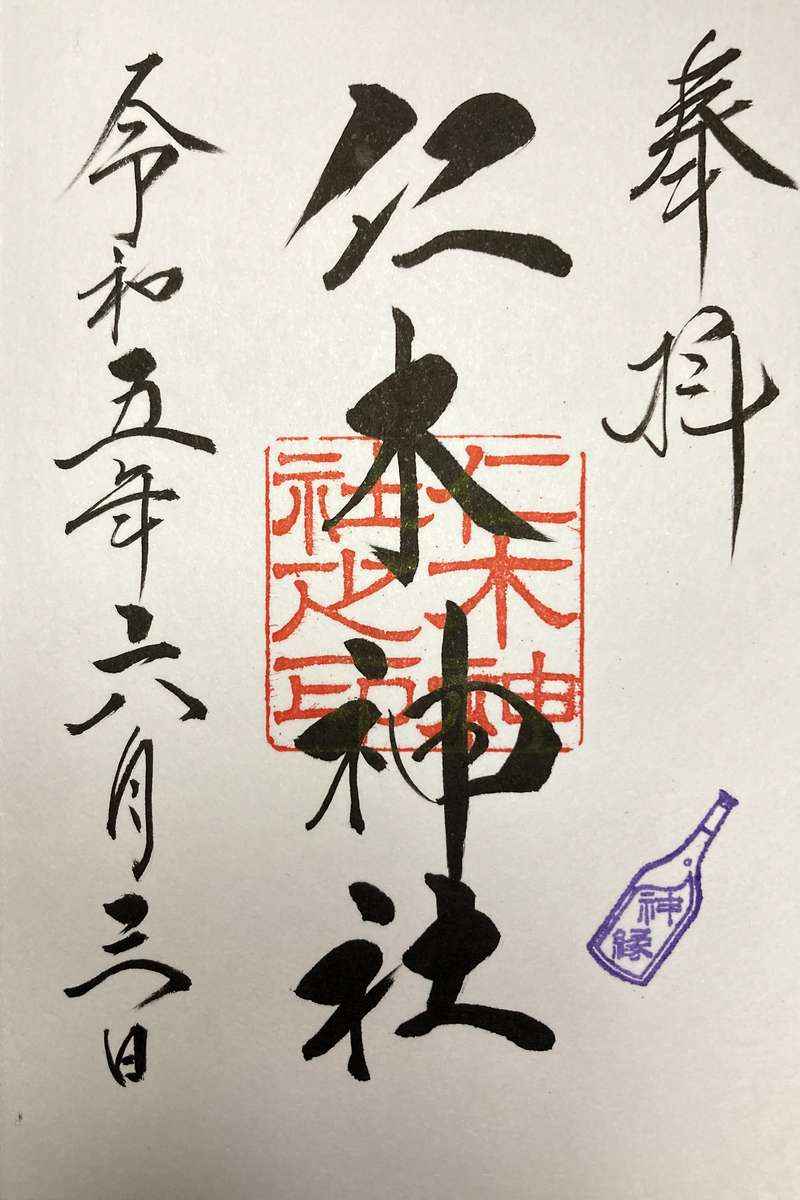 奉拝
仁木神社
仁木神
社之印
令和五年六月三日
神縁